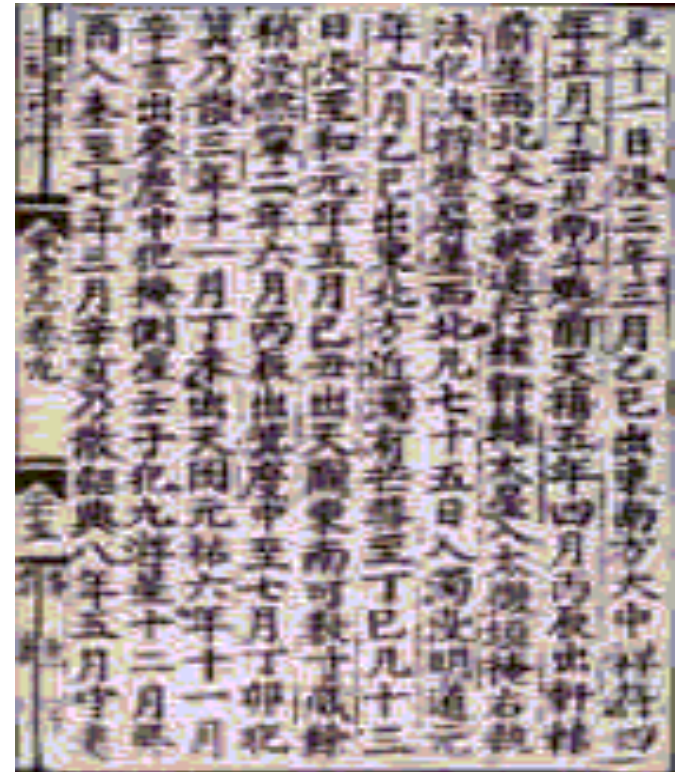 見十一日沒三年三月乙巳出東南方大中祥符四
年正月丁丑見南斗魁前天禧五年四月丙辰出軒轅
前星西北大如桃速行經軒轅大星入太微垣掩右執
法犯次將歷屏星西北凡七十五日入濁沒明道元
年六月乙巳出東北方近濁有芒彗至丁巳凡十三
日沒至和元年五月己丑出天關東南可數寸歲餘
稍沒熙寧二年六月丙辰出箕度中至七月丁卯犯
箕乃散三年十一月丁未出天囷元祐六年十一月
辛亥出參度中犯掩側星壬子犯九斿星十二月癸
酉入奎至七年三月辛亥乃散紹興八年五月守婁